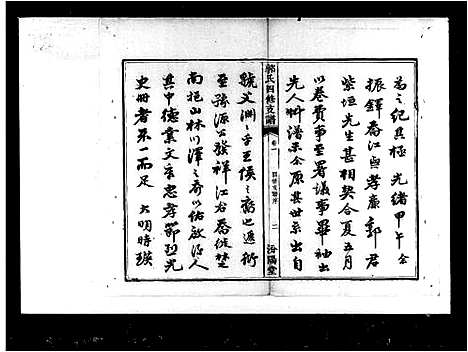 為之紀其極光緒甲午余
振鐸喬江與孝廉郭君
紫垣先生甚相契合夏五月
以卷費事至署議事畢袖出
先人料譜示余原其世系出自
郭氏四修支譜
卷一
四修支譜序
二
汾陽堂
虢父淵乎王侯之裔也遞衍
至豫源公發祥江省喬從楚
南挹山林川澤之奇以佑啟後人
其中德業文章忠孝節烈光
史冊者不一而足大明時瑛